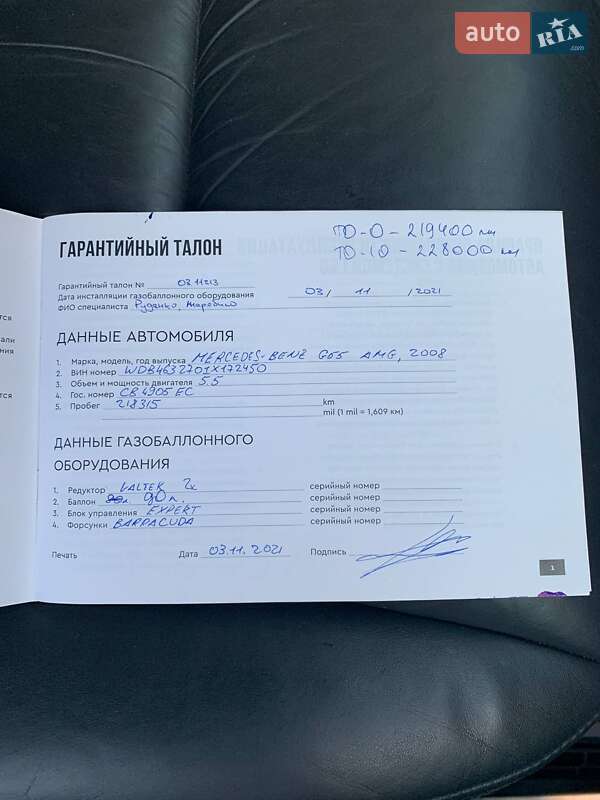 auto RIA.com
ТО-0 – 219400 км
ТО-10 – 228000 км
ГАРАНТИЙНЫЙ ТАЛОН
Гарантийный талон № 03.11213
Дата инсталляции газобаллонного оборудования 03/ 11 /2021
ФИО специалиста Руденко,
ДАННЫЕ АВТОМОБИЛЯ
1. Марка, модель, год выпуска MERCEDES-BENZ G55 AMG, 2008
2. ВИН номер WDB4632701X172450
3. Объем и мощность двигателя 5.5
4. Гос. номер СВ 4905 ЕС
5. Пробег 218315 km
mil (1 mil = 1,609 км)
ДАННЫЕ ГАЗОБАЛЛОННОГО
ОБОРУДОВАНИЯ
1. Редуктор VALTEK 2х серийный номер
2. Баллон 90 л. серийный номер
3. Блок управления EXPERT серийный номер
4. Форсунки BARRACUDA серийный номер
Печать Дата 03.11.2021 Подпись
1
тся
вали
ения
ется